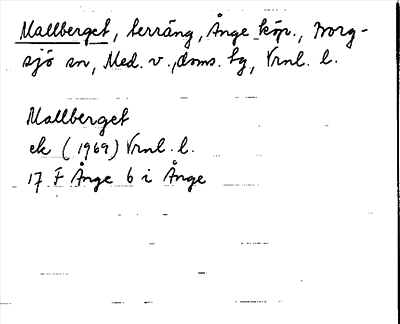 Mallberget, terräng, Ånge köp., Borg-
sjö sn, Med. v., doms. tg, Vrnl. l.
Mallberget
ek (1969) Vrnl. l.
17 F Ånge 6 i Ånge